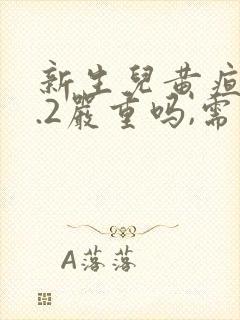 新生兒黄疸
.2嚴重吗,需
A落落